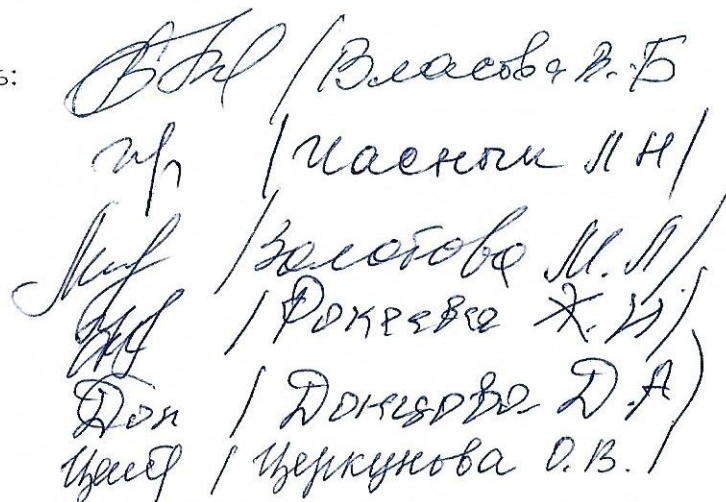 ь:
/ Власова В. Б
/ Часнык Л Н /
/ Золотова М. Л /
/ Рокеева Ж. Н /
Дон / Донцова Д. А /
/ Церкунова О. В. /